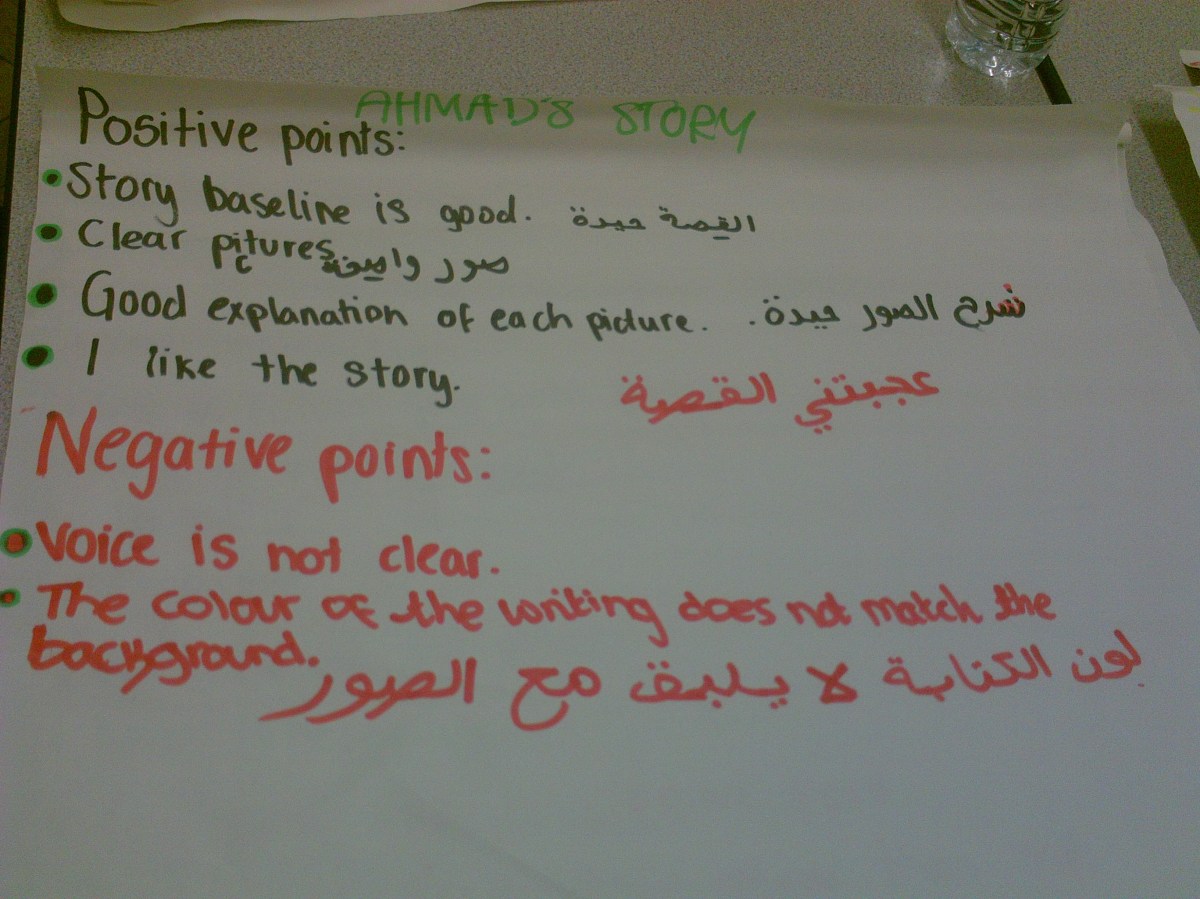 AHMAD'S STORY
Positive points:
• Story baseline is good. القصة جيدة
• Clear pitures c صور واضحة
• Good explanation of each picture. شرح الصور جيدة.
• I like the story. عجبتني القصة
Negative points:
• Voice is not clear.
• The colour of the writing does not match the
background.
لون الكتابة لا يليق مع الصور